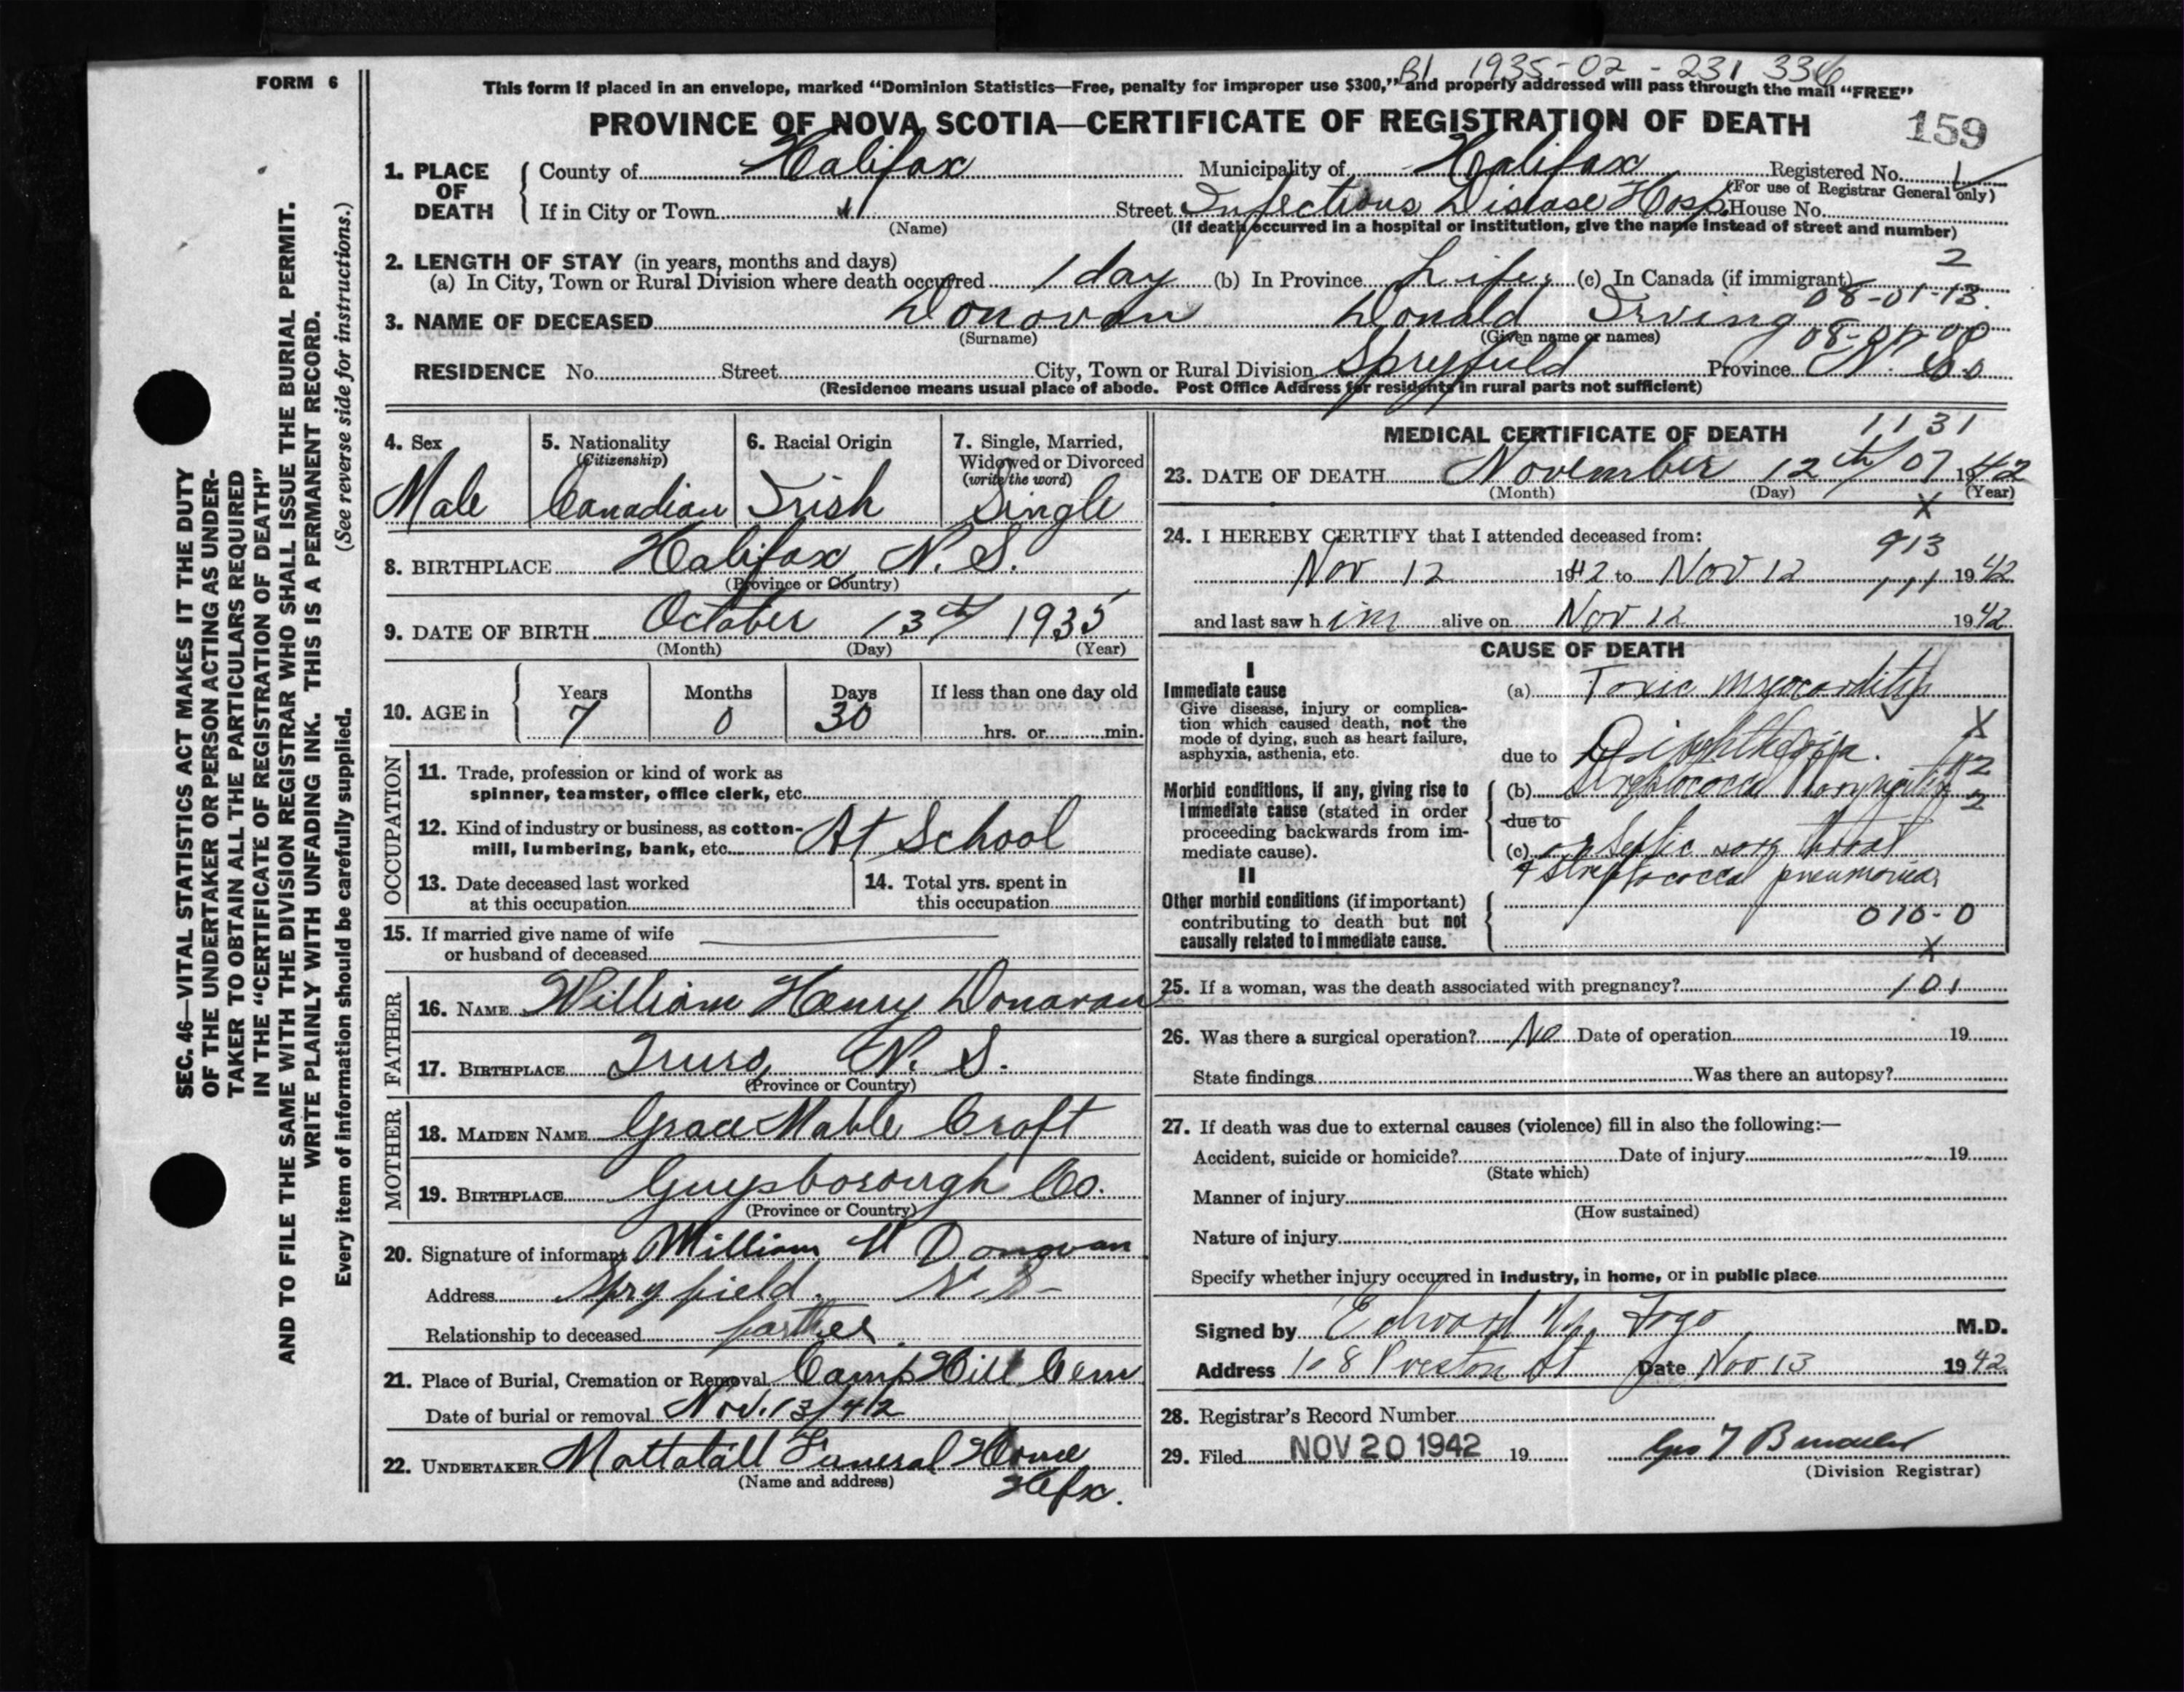 FORM 6
B1 1935-02-231 336
This form if placed in an envelope, marked "Dominion Statistics—Free, penalty for improper use $300," and properly addressed will pass through the mail "FREE"
PROVINCE OF NOVA SCOTIA—CERTIFICATE OF REGISTRATION OF DEATH
159
1. PLACE OF DEATH
County of Halifax Municipality of Halifax Registered No. 1
(For use of Registrar General only)
If in City or Town Street Infectious Disease Hosp. House No.
(Name) (If death occurred in a hospital or institution, give the name instead of street and number)
2. LENGTH OF STAY (in years, months and days)
2
(a) In City, Town or Rural Division where death occurred 1 day (b) In Province Life (c) In Canada (if immigrant)
08-01-13.
3. NAME OF DECEASED Donovan Donald Irving
(Surname) (Given name or names)
RESIDENCE No. Street City, Town or Rural Division Spryfield Province N. S.
(Residence means usual place of abode. Post Office Address for residents in rural parts not sufficient)
4. Sex
Male
5. Nationality
(Citizenship)
Canadian
6. Racial Origin
Irish
7. Single, Married,
Widowed or Divorced
(write the word)
Single
8. BIRTHPLACE Halifax, N. S.
(Province or Country)
9. DATE OF BIRTH October 13th 1935
(Month) (Day) (Year)
10. AGE in
Years Months Days If less than one day old
7 0 30 hrs. or min.
OCCUPATION
11. Trade, profession or kind of work as
spinner, teamster, office clerk, etc.
12. Kind of industry or business, as cotton-
mill, lumbering, bank, etc. At School
13. Date deceased last worked
at this occupation
14. Total yrs. spent in
this occupation
15. If married give name of wife
or husband of deceased
FATHER
16. NAME William Henry Donavan
17. BIRTHPLACE Truro, N. S.
(Province or Country)
MOTHER
18. MAIDEN NAME Grace Mable Croft
19. BIRTHPLACE Guysborough Co.
(Province or Country)
20. Signature of informant William H Donovan
Address Spryfield. N.S-
Relationship to deceased father
21. Place of Burial, Cremation or Removal Camp Hill Cem
Date of burial or removal Nov. 13/42
22. UNDERTAKER Mattatall Funeral Home
(Name and address) Hfx.
MEDICAL CERTIFICATE OF DEATH
1131
23. DATE OF DEATH November 12th 07 1942
(Month) (Day) (Year)
X
24. I HEREBY CERTIFY that I attended deceased from:
913
Nov 12 1942 to Nov 12 111 1942
and last saw him alive on Nov 12 1942
CAUSE OF DEATH
I
Immediate cause
Give disease, injury or complica-
tion which caused death, not the
mode of dying, such as heart failure,
asphyxia, asthenia, etc.
(a) Toxic myocarditis
due to Diphtheria.
X
Morbid conditions, if any, giving rise to
immediate cause (stated in order
proceeding backwards from im-
mediate cause).
(b) Streptococcal
due to
(c) or Septic sore throat
& streptococcal pneumonia
II
Other morbid conditions (if important)
contributing to death but not
causally related to immediate cause.
010-0
X
25. If a woman, was the death associated with pregnancy? 101
26. Was there a surgical operation? No Date of operation 19
State findings Was there an autopsy?
27. If death was due to external causes (violence) fill in also the following:—
Accident, suicide or homicide? Date of injury 19
(State which)
Manner of injury
(How sustained)
Nature of injury
Specify whether injury occurred in industry, in home, or in public place
Signed by Edward M. Fogo M.D.
Address 108 Preston St Date Nov 13 1942
28. Registrar's Record Number
29. Filed NOV 20 1942 19
(Division Registrar)
SEC. 46—VITAL STATISTICS ACT MAKES IT THE DUTY
OF THE UNDERTAKER OR PERSON ACTING AS UNDER-
TAKER TO OBTAIN ALL THE PARTICULARS REQUIRED
IN THE "CERTIFICATE OF REGISTRATION OF DEATH"
AND TO FILE THE SAME WITH THE DIVISION REGISTRAR WHO SHALL ISSUE THE BURIAL PERMIT.
WRITE PLAINLY WITH UNFADING INK. THIS IS A PERMANENT RECORD.
Every item of information should be carefully supplied. (See reverse side for instructions.)